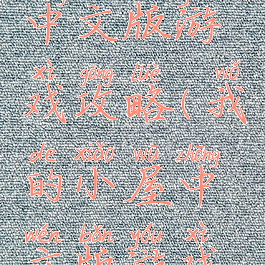 中文版游
xì gōng lüè wǒ
戏攻略(我
de xiǎo wū zhōng
的小屋中
wén bǎn yóu xì